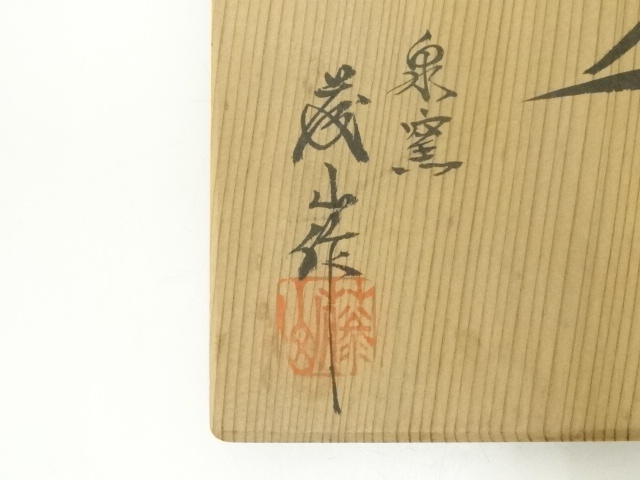 泉窯
茂山作